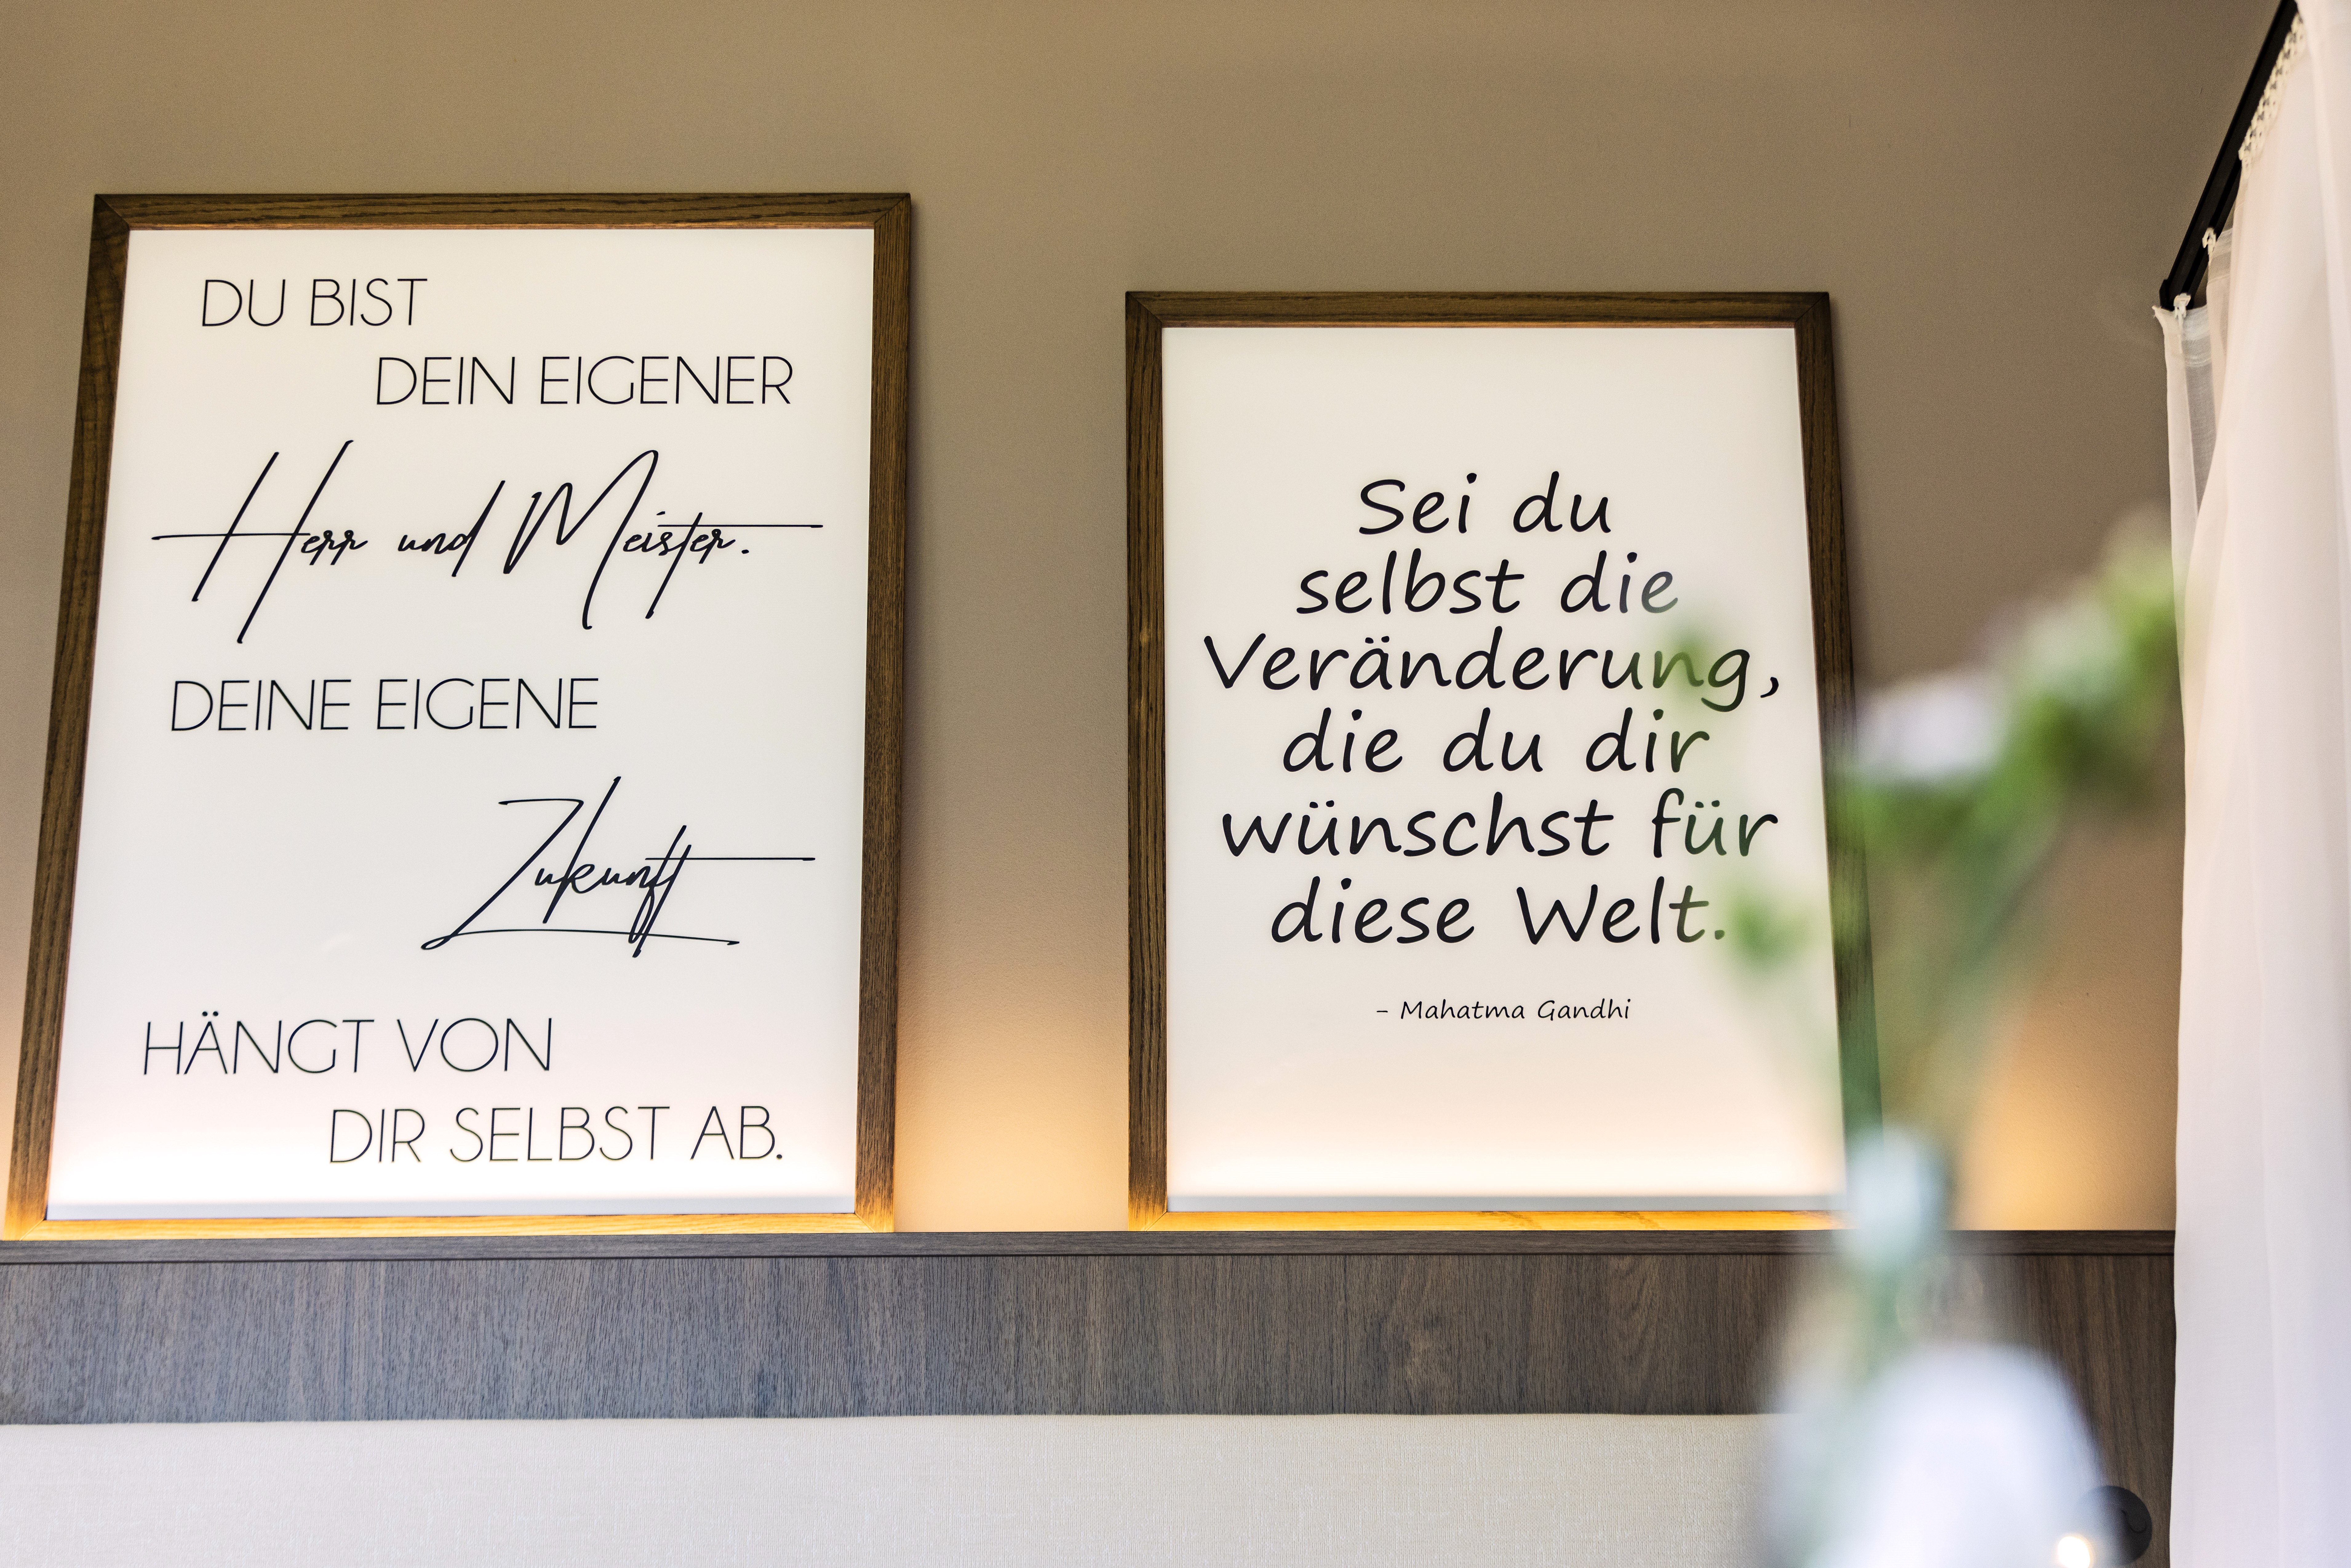 DU BIST
DEIN EIGENER
Herr und Meister.
DEINE EIGENE
Zukunft
HÄNGT VON
DIR SELBST AB.
Sei du
selbst die
Veränderung,
die du dir
wünschst für
diese Welt.
- Mahatma Gandhi